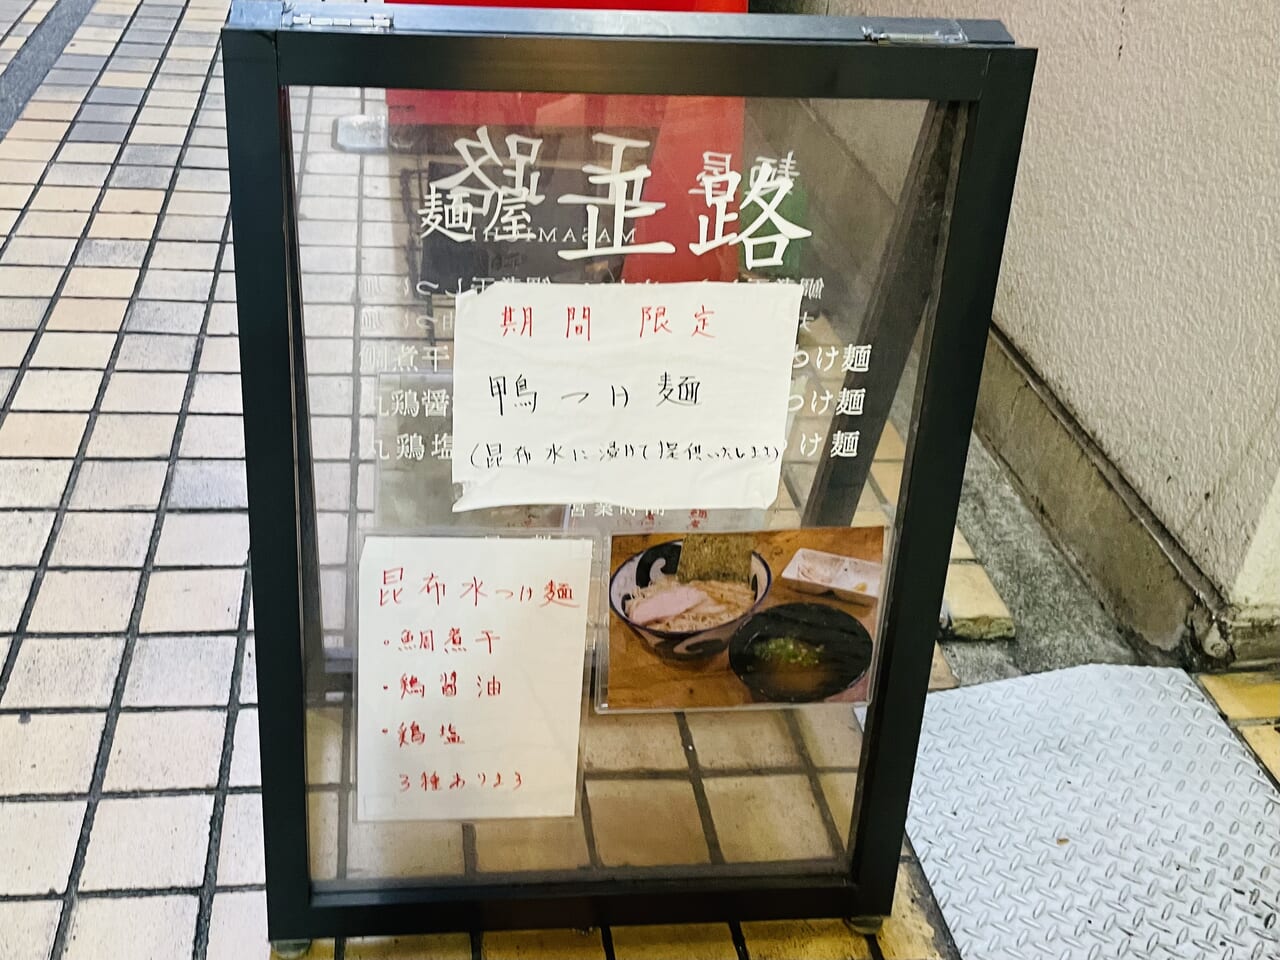 麺屋 正路
MASAMICHI
期間限定
鴨つけ麺
(昆布水に漬けて提供いたします)
鯛煮干
つけ麺
丸鶏醤
つけ麺
丸鶏塩
つけ麺
営業時間
昆布水つけ麺
・鯛煮干
・鶏醤油
・鶏塩
3種あります